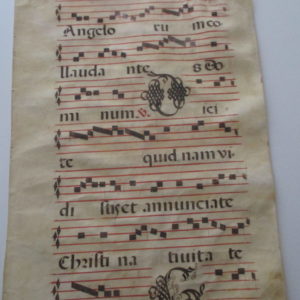 Angelo ru m co
llauda nte s Do
mi num. V. D ici
te quid nam vi
di stis et annunciate
Christi na tivita te